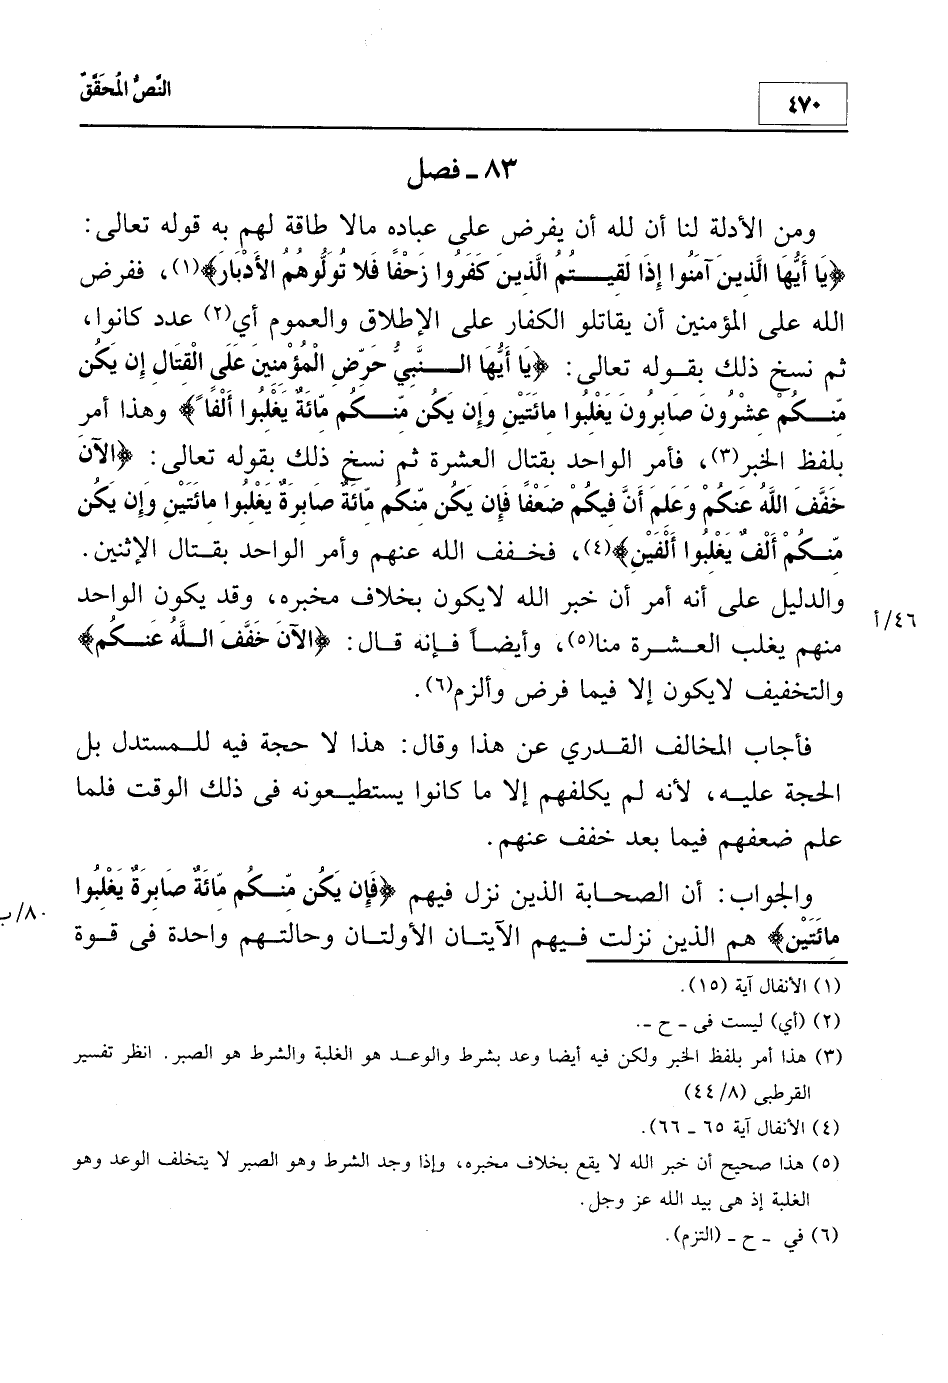 النَّصُّ المُحَقَّقْ
٤٧٠
٨٣ ـ فصل
ومن الأدلة لنا أن لله أن يفرض على عباده مالا طاقة لهم به قوله تعالى:
﴿يَا أَيُّهَا الَّذِينَ آمَنُوا إِذَا لَقِيتُمُ الَّذِينَ كَفَرُوا زَحْفًا فَلَا تُوَلُّوهُمُ الأَدْبَارَ﴾(١)، ففرض
الله على المؤمنين أن يقاتلو الكفار على الإطلاق والعموم أي(٢) عدد كانوا،
ثم نسخ ذلك بقوله تعالى: ﴿يَا أَيُّهَا النَّبِيُّ حَرِّضِ الْمُؤْمِنِينَ عَلَى الْقِتَالِ إِن يَكُن
مِّنكُمْ عِشْرُونَ صَابِرُونَ يَغْلِبُوا مِائَتَيْنِ وَإِن يَكُن مِّنكُم مِّائَةٌ يَغْلِبُوا أَلْفًا﴾ وهذا أمر
بلفظ الخبر(٣)، فأمر الواحد بقتال العشرة ثم نسخ ذلك بقوله تعالى: ﴿الآنَ
خَفَّفَ اللَّهُ عَنكُمْ وَعَلِمَ أَنَّ فِيكُمْ ضَعْفًا فَإِن يَكُن مِّنكُم مِّائَةٌ صَابِرَةٌ يَغْلِبُوا مِائَتَيْنِ وَإِن يَكُن
مِّنكُمْ أَلْفٌ يَغْلِبُوا أَلْفَيْنِ﴾(٤)، فخفف الله عنهم وأمر الواحد بقتال الإثنين.
والدليل على أنه أمر أن خبر الله لايكون بخلاف مخبره، وقد يكون الواحد
٤٦/أ
منهم يغلب العشرة منا(٥)، وأيضاً فإنه قال: ﴿الآنَ خَفَّفَ اللَّهُ عَنكُم﴾
والتخفيف لايكون إلا فيما فرض وألزم(٦).
فأجاب المخالف القدري عن هذا وقال: هذا لا حجة فيه للمستدل بل
الحجة عليه، لأنه لم يكلفهم إلا ما كانوا يستطيعونه فى ذلك الوقت فلما
علم ضعفهم فيما بعد خفف عنهم.
والجواب: أن الصحابة الذين نزل فيهم ﴿فَإِن يَكُن مِّنكُم مِّائَةٌ صَابِرَةٌ يَغْلِبُوا
٨٠/ب
مِائَتَيْنِ﴾ هم الذين نزلت فيهم الآيتان الأولتان وحالتهم واحدة فى قوة
(١) الأنفال آية (١٥).
(٢) (أي) ليست فى ـ ح ـ.
(٣) هذا أمر بلفظ الخبر ولكن فيه أيضا وعد بشرط والوعد هو الغلبة والشرط هو الصبر. انظر تفسير
القرطبى (٤٤/٨)
(٤) الأنفال آية ٦٥ ـ ٦٦).
(٥) هذا صحيح أن خبر الله لا يقع بخلاف مخبره، وإذا وجد الشرط وهو الصبر لا يتخلف الوعد وهو
الغلبة إذ هى بيد الله عز وجل.
(٦) في ـ ح ـ (التزم).